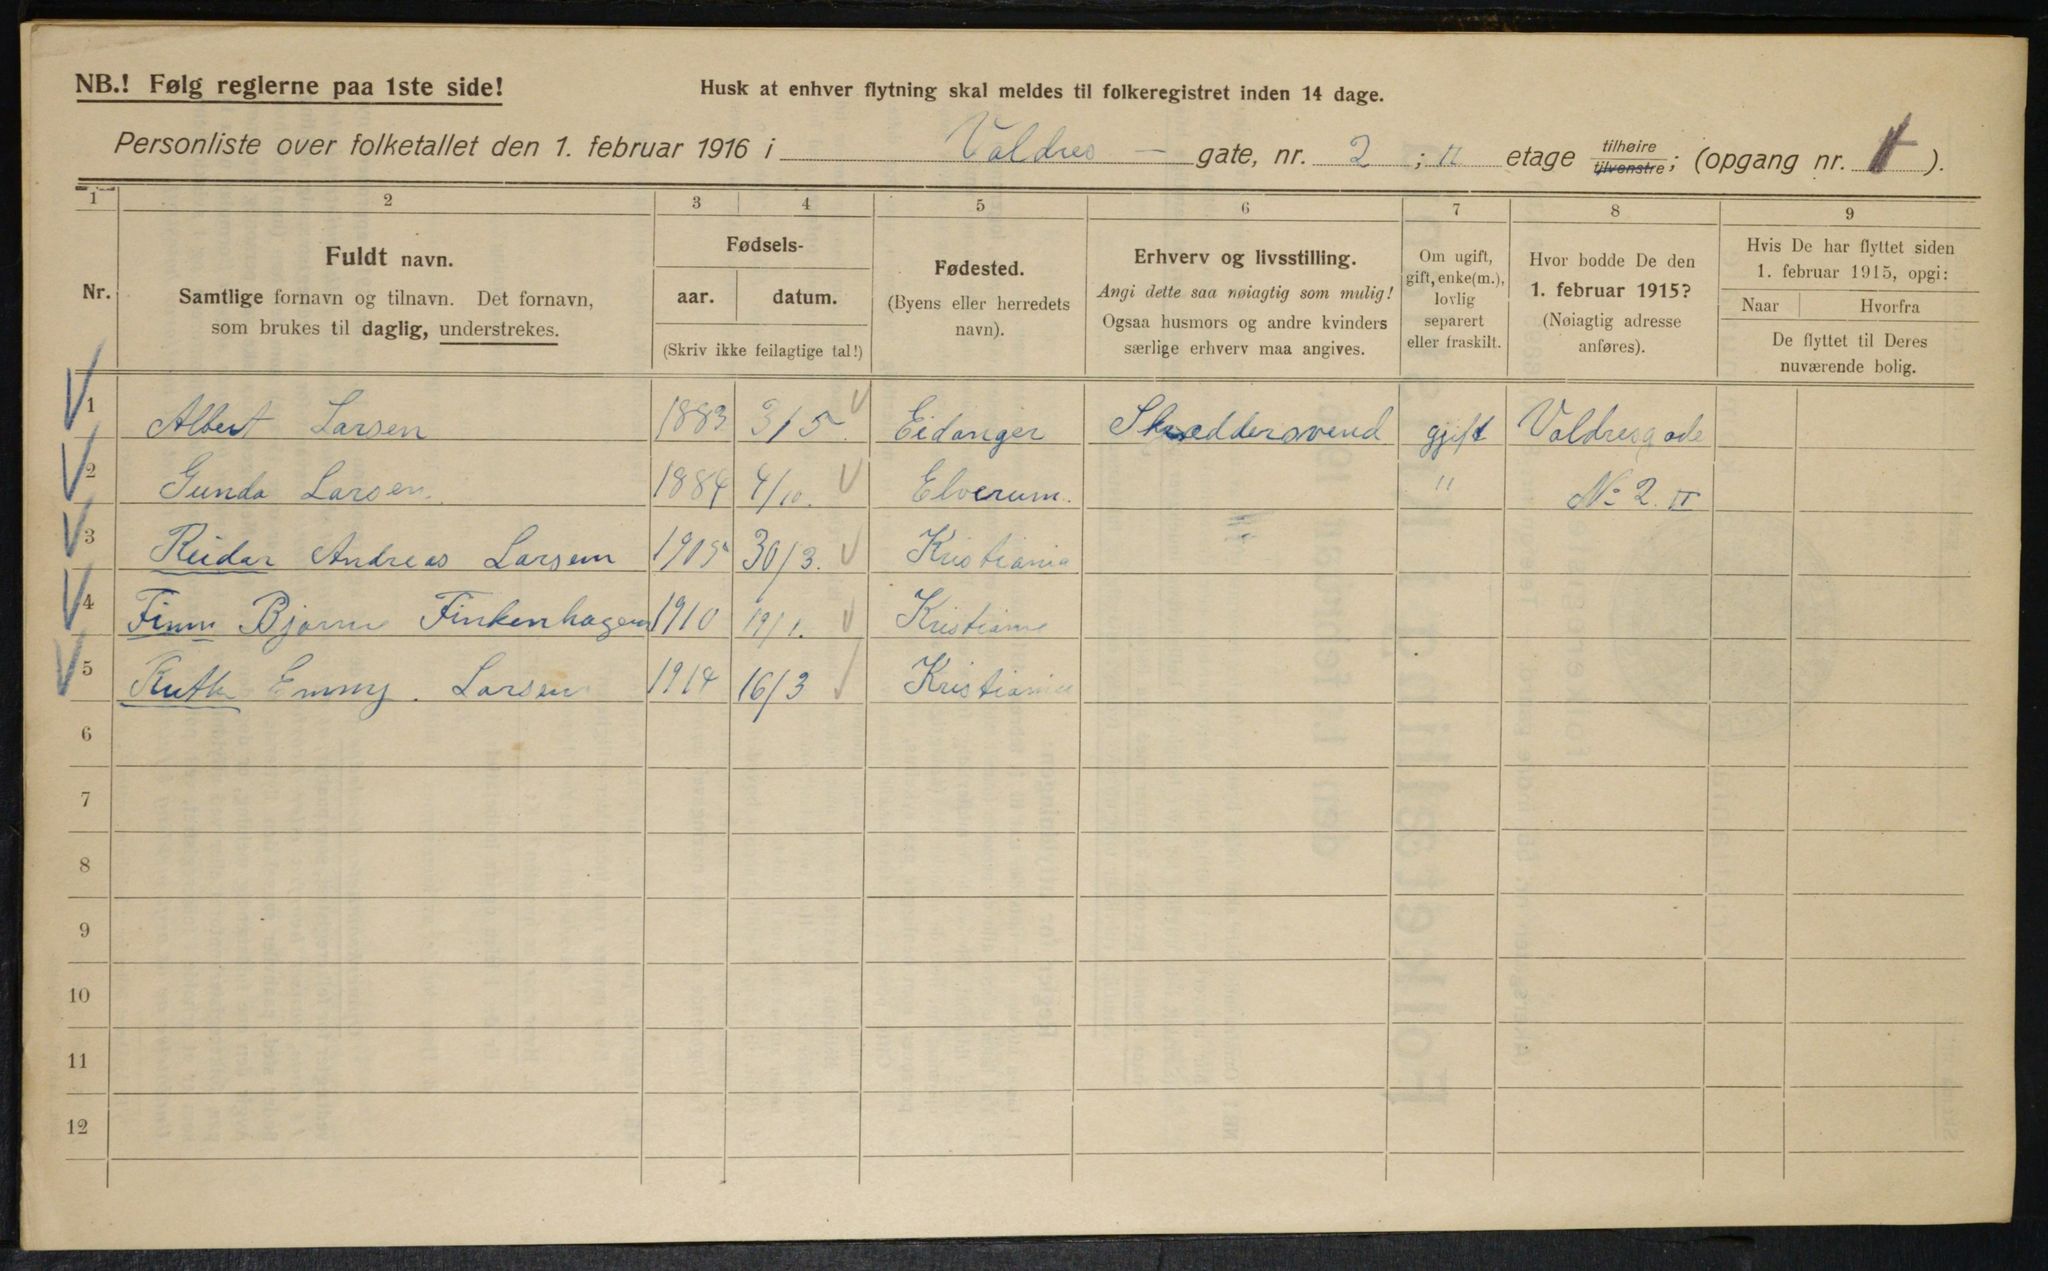 NB.! Følg reglerne paa 1ste side!
Husk at enhver flytning skal meldes til folkeregistret inden 14 dage.
Personliste over folketallet den 1. februar 1916 i Valdres — gate, nr. 2 ; II etage tilhøire tilvenstre; (opgang nr. ).
1 2 3 4 5 6 7 8 9
Nr.
Fuldt navn.
Samtlige fornavn og tilnavn. Det fornavn,
som brukes til daglig, understrekes.
Fødsels-
aar. datum.
(Skriv ikke feilagtige tal!)
Fødested.
(Byens eller herredets
navn).
Erhverv og livsstilling.
Angi dette saa nøiagtig som mulig!
Ogsaa husmors og andre kvinders
særlige erhverv maa angives.
Om ugift,
gift, enke(m.),
lovlig
separert
eller fraskilt.
Hvor bodde De den
1. februar 1915?
(Nøiagtig adresse
anføres).
Hvis De har flyttet siden
1. februar 1915, opgi:
Naar Hvorfra
De flyttet til Deres
nuværende bolig.
1 Albert Larsen 1883 3/5 Eidanger Skræddersvend gift Valdresgade
2 Gunda Larsen. 1884 4/10. Elverum. " No 2. II
3 Reidar Andreas Larsen 1905 30/3. Kristiania
4 Finn Bjarne Finkenhagen 1910 19/1. Kristiania
5 Ruth Emmy. Larsen 1914 16/3 Kristiania
6
7
8
9
10
11
12